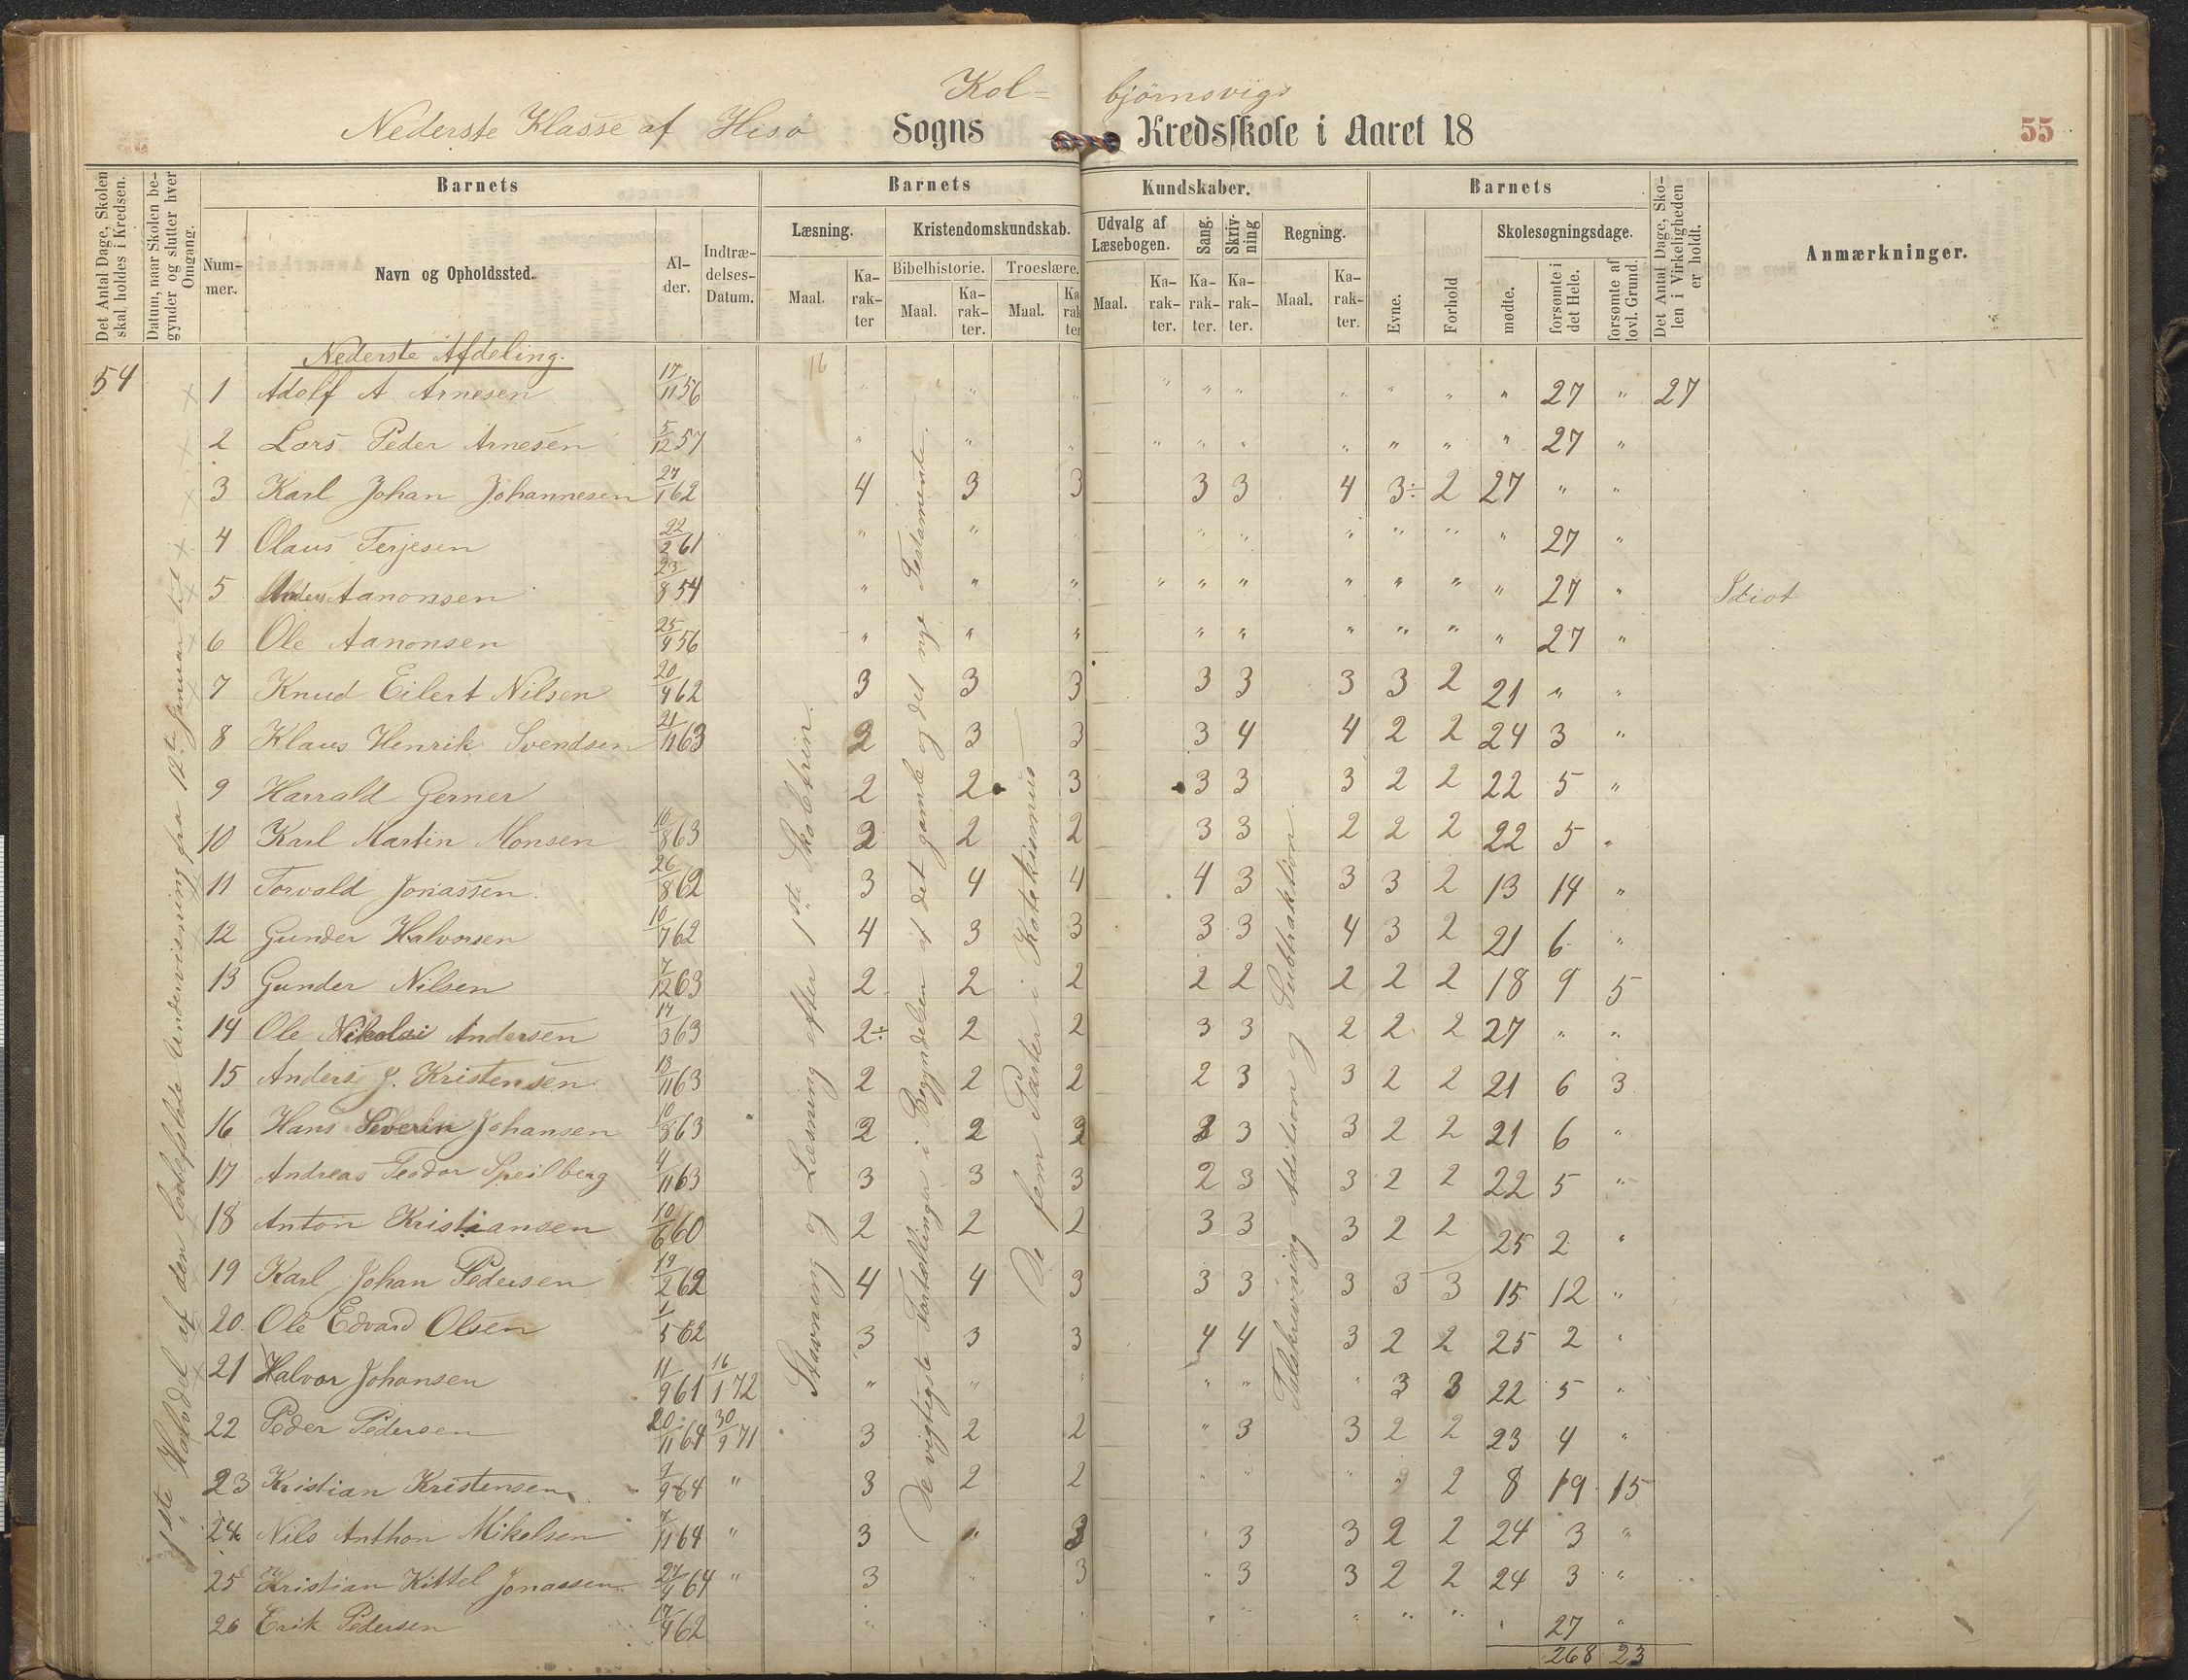 Kol= bjørnsvigs
Nederste Klasse af Hisø Sogns Kredsskole i Aaret 18
55
Det Antal Dage, Skolen skal holdes i Kredsen.
Datum, naar Skolen begynder og slutter hver Omgang.
Barnets
Nummer.
Navn og Opholdssted.
Alder.
Indtrædelses-Datum.
Barnets Kundskaber.
Læsning.
Maal.
Karakter
Kristendomskundskab.
Bibelhistorie.
Maal.
Karakter.
Troeslære.
Maal.
Karakter
Udvalg af Læsebogen.
Maal.
Karakter.
Sang.
Karakter.
Skrivning
Karakter.
Regning.
Maal.
Karakter.
Barnets
Evne.
Forhold
Skolesøgningsdage.
mødte.
forsømte i det Hele.
forsømte af lovl. Grund.
Det Antal Dage, Skolen i Virkeligheden er holdt.
Anmærkninger.
54
1ste Halvdel af den lovbefalede Undervisning fra 12te Januar til
Stavning og Læsning efter 1ste Skoletrin.
De vigtigste Fortællinger i Begyndelsen af det gamle og det nye Testamente
De fem Parter i Katekismus
Talskrivning Adition og Subtraktion
Nederste Afdeling.
1 Adolf A Arnesen 17/11 56 " " " " " " " " " " 27 " 27
2 Lars Peder Arnesen 5/12 57 " " " " " " " " " " 27 "
3 Karl Johan Johannesen 27/1 62 4 3 3 3 3 4 3÷ 2 27 " "
4 Olaus Terjesen 22/2 61 " " " " " " " " 27 "
5 Anders Aanonsen 23/8 54 " " " " " " " " " " 27 " Idiot
6 Ole Aanonsen 25/4 56 " " " " " " " " " 27 "
7 Knud Eilert Nilsen 20/4 62 3 3 3 3 3 3 3 2 21 " "
8 Klaus Henrik Svendsen 21/11 63 2 3 3 3 4 4 2 2 24 3 "
9 Harrald Gerner 2 2 3 3 3 3 2 2 22 5 "
10 Karl Martin Monsen 10/8 63 2 2 2 3 3 2 2 2 22 5 "
11 Torvald Jonassen 26/8 62 3 4 4 4 3 3 3 2 13 14 "
12 Gunder Halvorsen 10/7 62 4 3 3 3 3 4 3 2 21 6 "
13 Gunder Nilsen 7/12 63 2 2 2 2 2 2 2 2 18 9 5
14 Ole Nikolai Andersen 14/3 63 2÷ 2 2 3 3 2 2 2 27 " "
15 Anders J. Kristensen 13/11 63 2 2 2 2 3 3 2 2 21 6 3
16 Hans Severin Johansen 10/8 63 2 2 2 2 3 3 2 2 21 6 "
17 Andreas Teodor Speilberg 4/11 63 3 3 3 2 3 3 2 2 22 5 "
18 Anton Kristiansen 10/6 60 2 2 2 3 3 3 2 2 25 2 "
19 Karl Johan Pedersen 19/2 62 4 4 3 3 3 3 3 3 15 12 "
20 Ole Edvard Olsen 1/5 62 3 3 3 4 4 3 2 2 25 2 "
21 Halvor Johansen 11/9 61 16/1 72 " " " " " " 3 3 22 5 "
22 Peder Pedersen 20/11 64 30/9 71 3 2 2 " 3 3 2 2 23 4 "
23 Kristian Kristensen 9/9 64 " 3 2 2 " " " " 2 8 19 15
24 Nils Anthon Mikelsen 7/11 64 " 3 " 3 " 3 3 2 2 24 3 "
25 Kristian Kittel Jonassen 27/4 64 " 3 " 3 " 3 3 2 2 24 3 "
26 Erik Pedersen 17/4 62 " " " " " " " " " 27 "
268 23